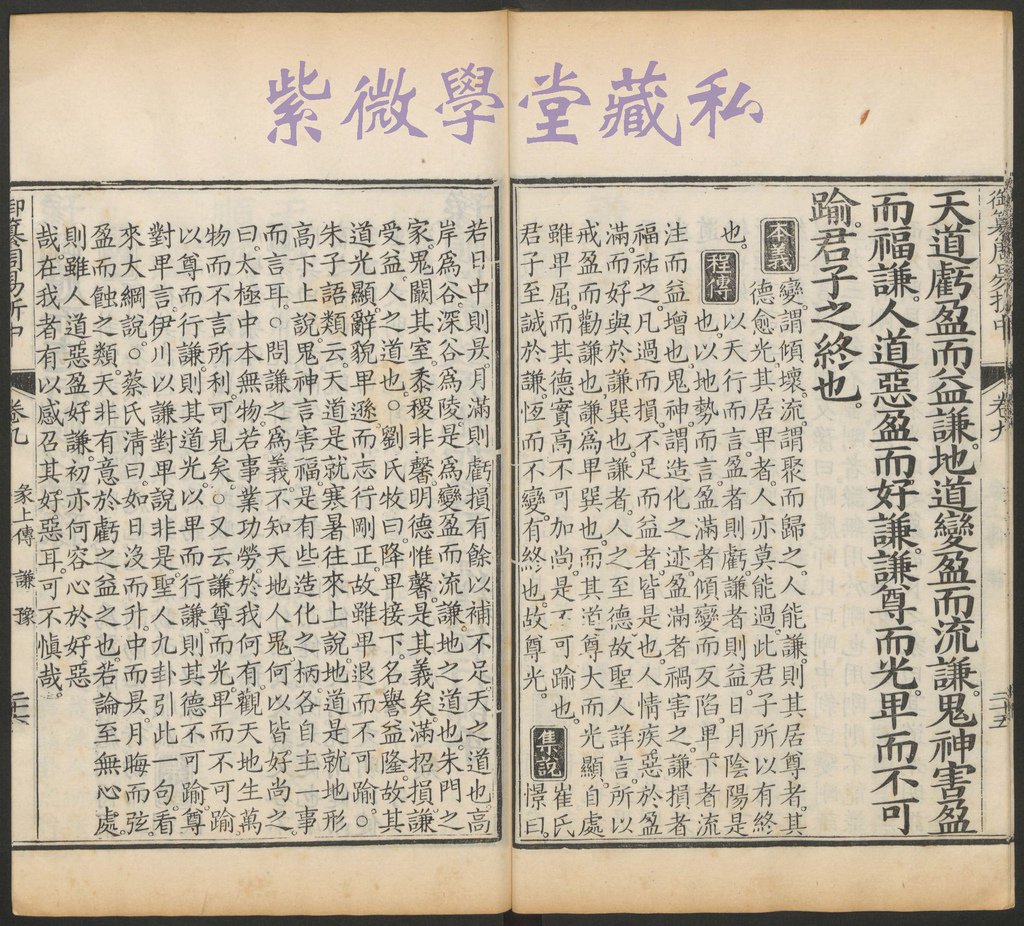 紫微學堂藏私
御纂周易折中 卷九 二十五
天道虧盈而益謙。地道變盈而流謙。鬼神害盈
而福謙。人道惡盈而好謙。謙尊而光。卑而不可
踰。君子之終也。
本義 變謂傾壞。流謂聚而歸之。人能謙。則其居尊者。其
德愈光。其居卑者。人亦莫能過。此君子所以有終
也。 程傳 以天行而言。盈者則虧。謙者則益。日月陰陽是
也。以地勢而言。盈滿者傾變而反陷。卑下者流
注而益增也。鬼神謂造化之迹。盈滿者禍害之。謙損者
福祐之。凡過而損。不足而益者。皆是也。人情疾惡於盈
滿。而好與於謙巽也。謙者人之至德。故聖人詳言。所以
戒盈而勸謙也。謙爲卑巽也。而其道尊大而光顯。自處
雖卑屈。而其德實高不可加尚。是不可踰也。 集說 崔氏
君子至誠於謙。恆而不變。有終也。故尊光。 憬曰。
若日中則昃。月滿則虧。損有餘以補不足。天之道也。高
岸爲谷。深谷爲陵。是爲變盈而流謙。地之道也。朱門之
家。鬼闞其室。黍稷非馨。明德惟馨。是其義矣。滿招損。謙
受益。人之道也。○劉氏牧曰。降卑接下。名譽益隆。故其
道光顯。辭貌卑遜。而志行剛正。故雖卑退而不可踰。○
朱子語類云。天道是就寒暑往來上說。地道是就地形
高下上說。鬼神言害福。是有些造化之柄。各自主一事
而言耳。○問謙之爲義。不知天地人鬼。何以皆好尚之。
曰。太極中本無物。若事業功勞。於我何有。觀天地生萬
物。而不言所利。可見矣。○又云。謙尊而光。卑而不可踰。
以尊而行謙。則其道光。以卑而行謙。則其德不可踰。尊
對卑言。伊川以謙對卑說。非是。聖人九卦引此一句。看
來大綱說。○蔡氏清曰。如日沒而升。中而昃。月晦而弦。
盈而蝕之類。天非有意於虧之益之也。若論至無心處。
則雖人道惡盈好謙。初亦何容心於好惡
哉。在我者有以感召其好惡耳。可不慎哉。
御纂周易折中 卷九 彖上傳 謙 豫 二十六